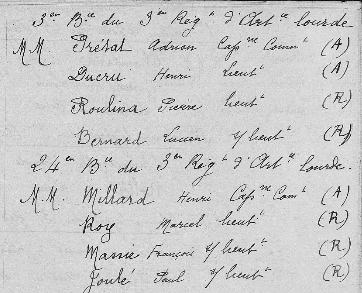 3en Bie du 3en Régt d'Artie lourde
M.M. Prétat Adrien Capne Commt (A)
Ducru Henri lieutt (A)
Roulina Pierre lieutt (R)
Bernard Lucien s/lieutt (R)
24en Bie du 3en Régt d'Artie lourde.
M.M. Millard Henri Capne Comt (A)
Roy Marcel lieutt (R)
Massie François s/lieutt (R)
Joulé Paul s/lieutt (R)